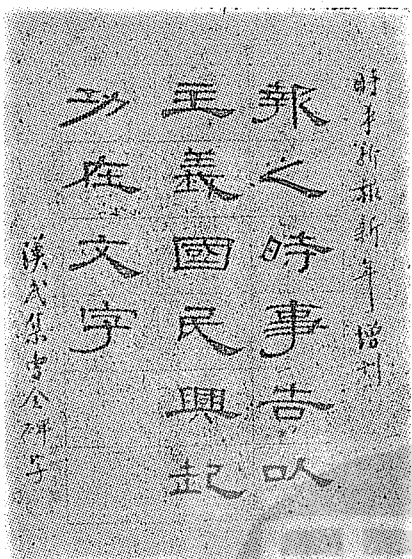 時事新報新年增刊
報之時事告以
主義國民興起
功在文字
漢民集曹全碑字